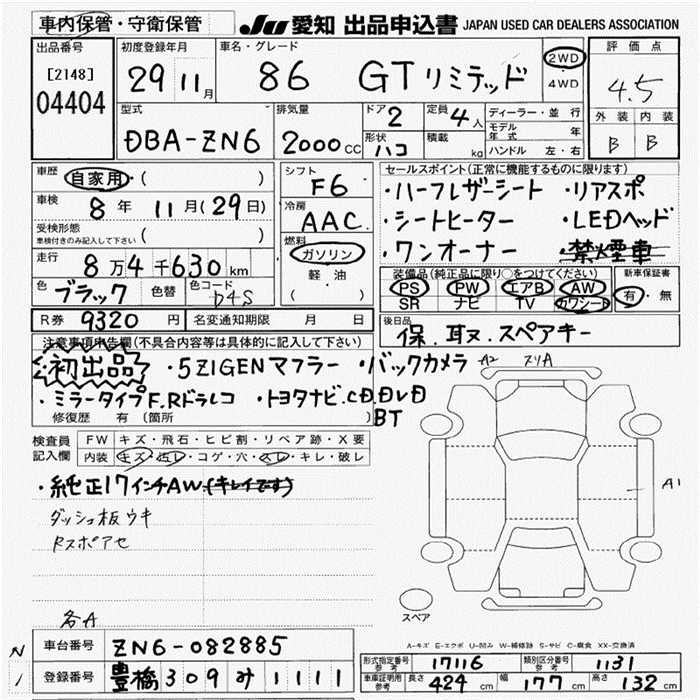 車内保管・守衛保管
JU 愛知 出品申込書 JAPAN USED CAR DEALERS ASSOCIATION
出品番号
[2148]
04404
初度登録年月
29 11月
車名・グレード
86 GTリミテッド
2WD
4WD
評価点
4.5
外装 内装
B B
型式
DBA-ZN6
排気量
2000cc
ドア 2
形状 ハコ
定員 4人
積載 kg
ディーラー・並行
モデル年式 年
ハンドル 左・右
車歴
自家用・( )
車検
8年 11月(29日)
受検形態
車検付きのみ記入して下さい ( )
走行
8万4千630km
色 ブラック 色替 色コード D4S
R券 9320円 名変通知期限 月 日
シフト
F6
冷房
AAC
燃料
ガソリン
軽・油
( )
セールスポイント(正常に機能するものに限ります)
・ハーフレザーシート ・リアスポ
・シートヒーター ・LEDヘッド
・ワンオーナー ・禁煙車
装備品(純正品に限り○をつけてください)
PS PW エアB AW
SR ナビ TV カワシート
新車保証書
有・無
後日品
保.取.スペアキー
注意事項申告欄(不具合内容等は具体的に記入して下さい)
初出品 ・5ZIGENマフラー ・バックカメラ
・ミラータイプF.Rドラレコ ・トヨタナビ.CD.DVD
BT
修復歴 有 (箇所 )
検査員記入欄
FW キズ・飛石・ヒビ割・リペア跡・X要
内装 キズ・汚レ・コゲ・穴・スレ・キレ・破レ
・純正17インチAW(キレイです)
ダッシュ板ウキ
Rスポアセ
各A
A2 スリA
A1
スペア
A-キズ E-エクボ U-凹み W-補修跡 S-サビ C-腐食 XX-交換済
車台番号 ZN6-082885
登録番号 豊橋 309 み 1111
形式指定番号 参考 17116 類別区分番号 参考 1131
車庫証明用 参考 長さ 424cm 幅 177cm 高さ 132cm